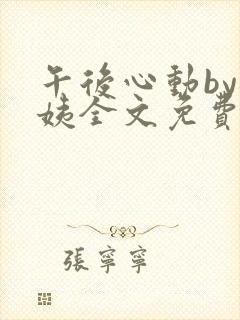 午後心動by
姨全文免費
張寧寧